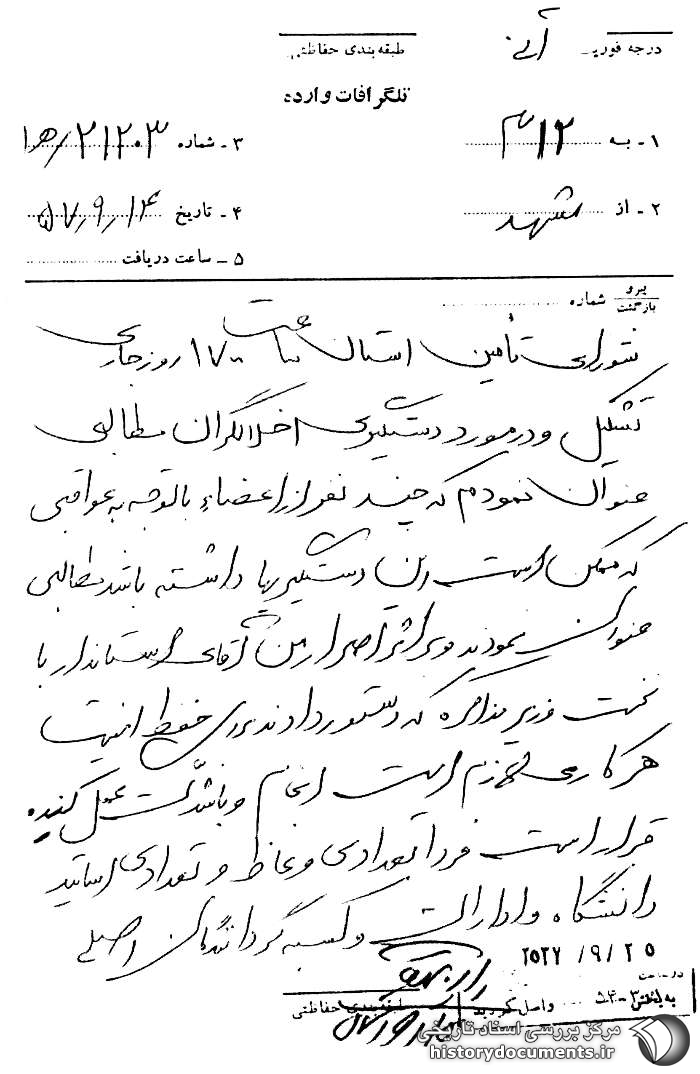 درجه فوریت آنی
طبقه‌بندی حفاظتی
تلگرافات وارده
۱ - به ۳۱۲
۳ - شماره ۲۱۲۰۳/ه۱
۲ - از مشهد
۴ - تاریخ ۵۷/۹/۱۴
۵ - ساعت دریافت
پیرو
بازگشت شماره
شورای تأمین استان ساعت ۱۷۰۰ روز جاری
تشکیل و در مورد دستگیری اخلالگران مطالبی
عنوان نمودم که چند نفر از اعضاء با توجه به عواقبی
که ممکن است این دستگیریها داشته باشد مطالبی
عنوان نمودند و بر اثر اصرار من آقای استاندار با
نخست وزیر مذاکره که دستور دادند برای حفظ امنیت
هر کاری لازم است انجام و با شدت عمل کنید
قرار است فردا تعدادی وعاظ و تعدادی اساتید
دانشگاه و ادارات و کسبه گردانندگان اصلی
۲۵۳۷/۹/۲۵
در ساعت
به بخش واصل گردید
طبقه‌بندی حفاظتی
مرکز بررسی اسناد تاریخی
historydocuments.ir